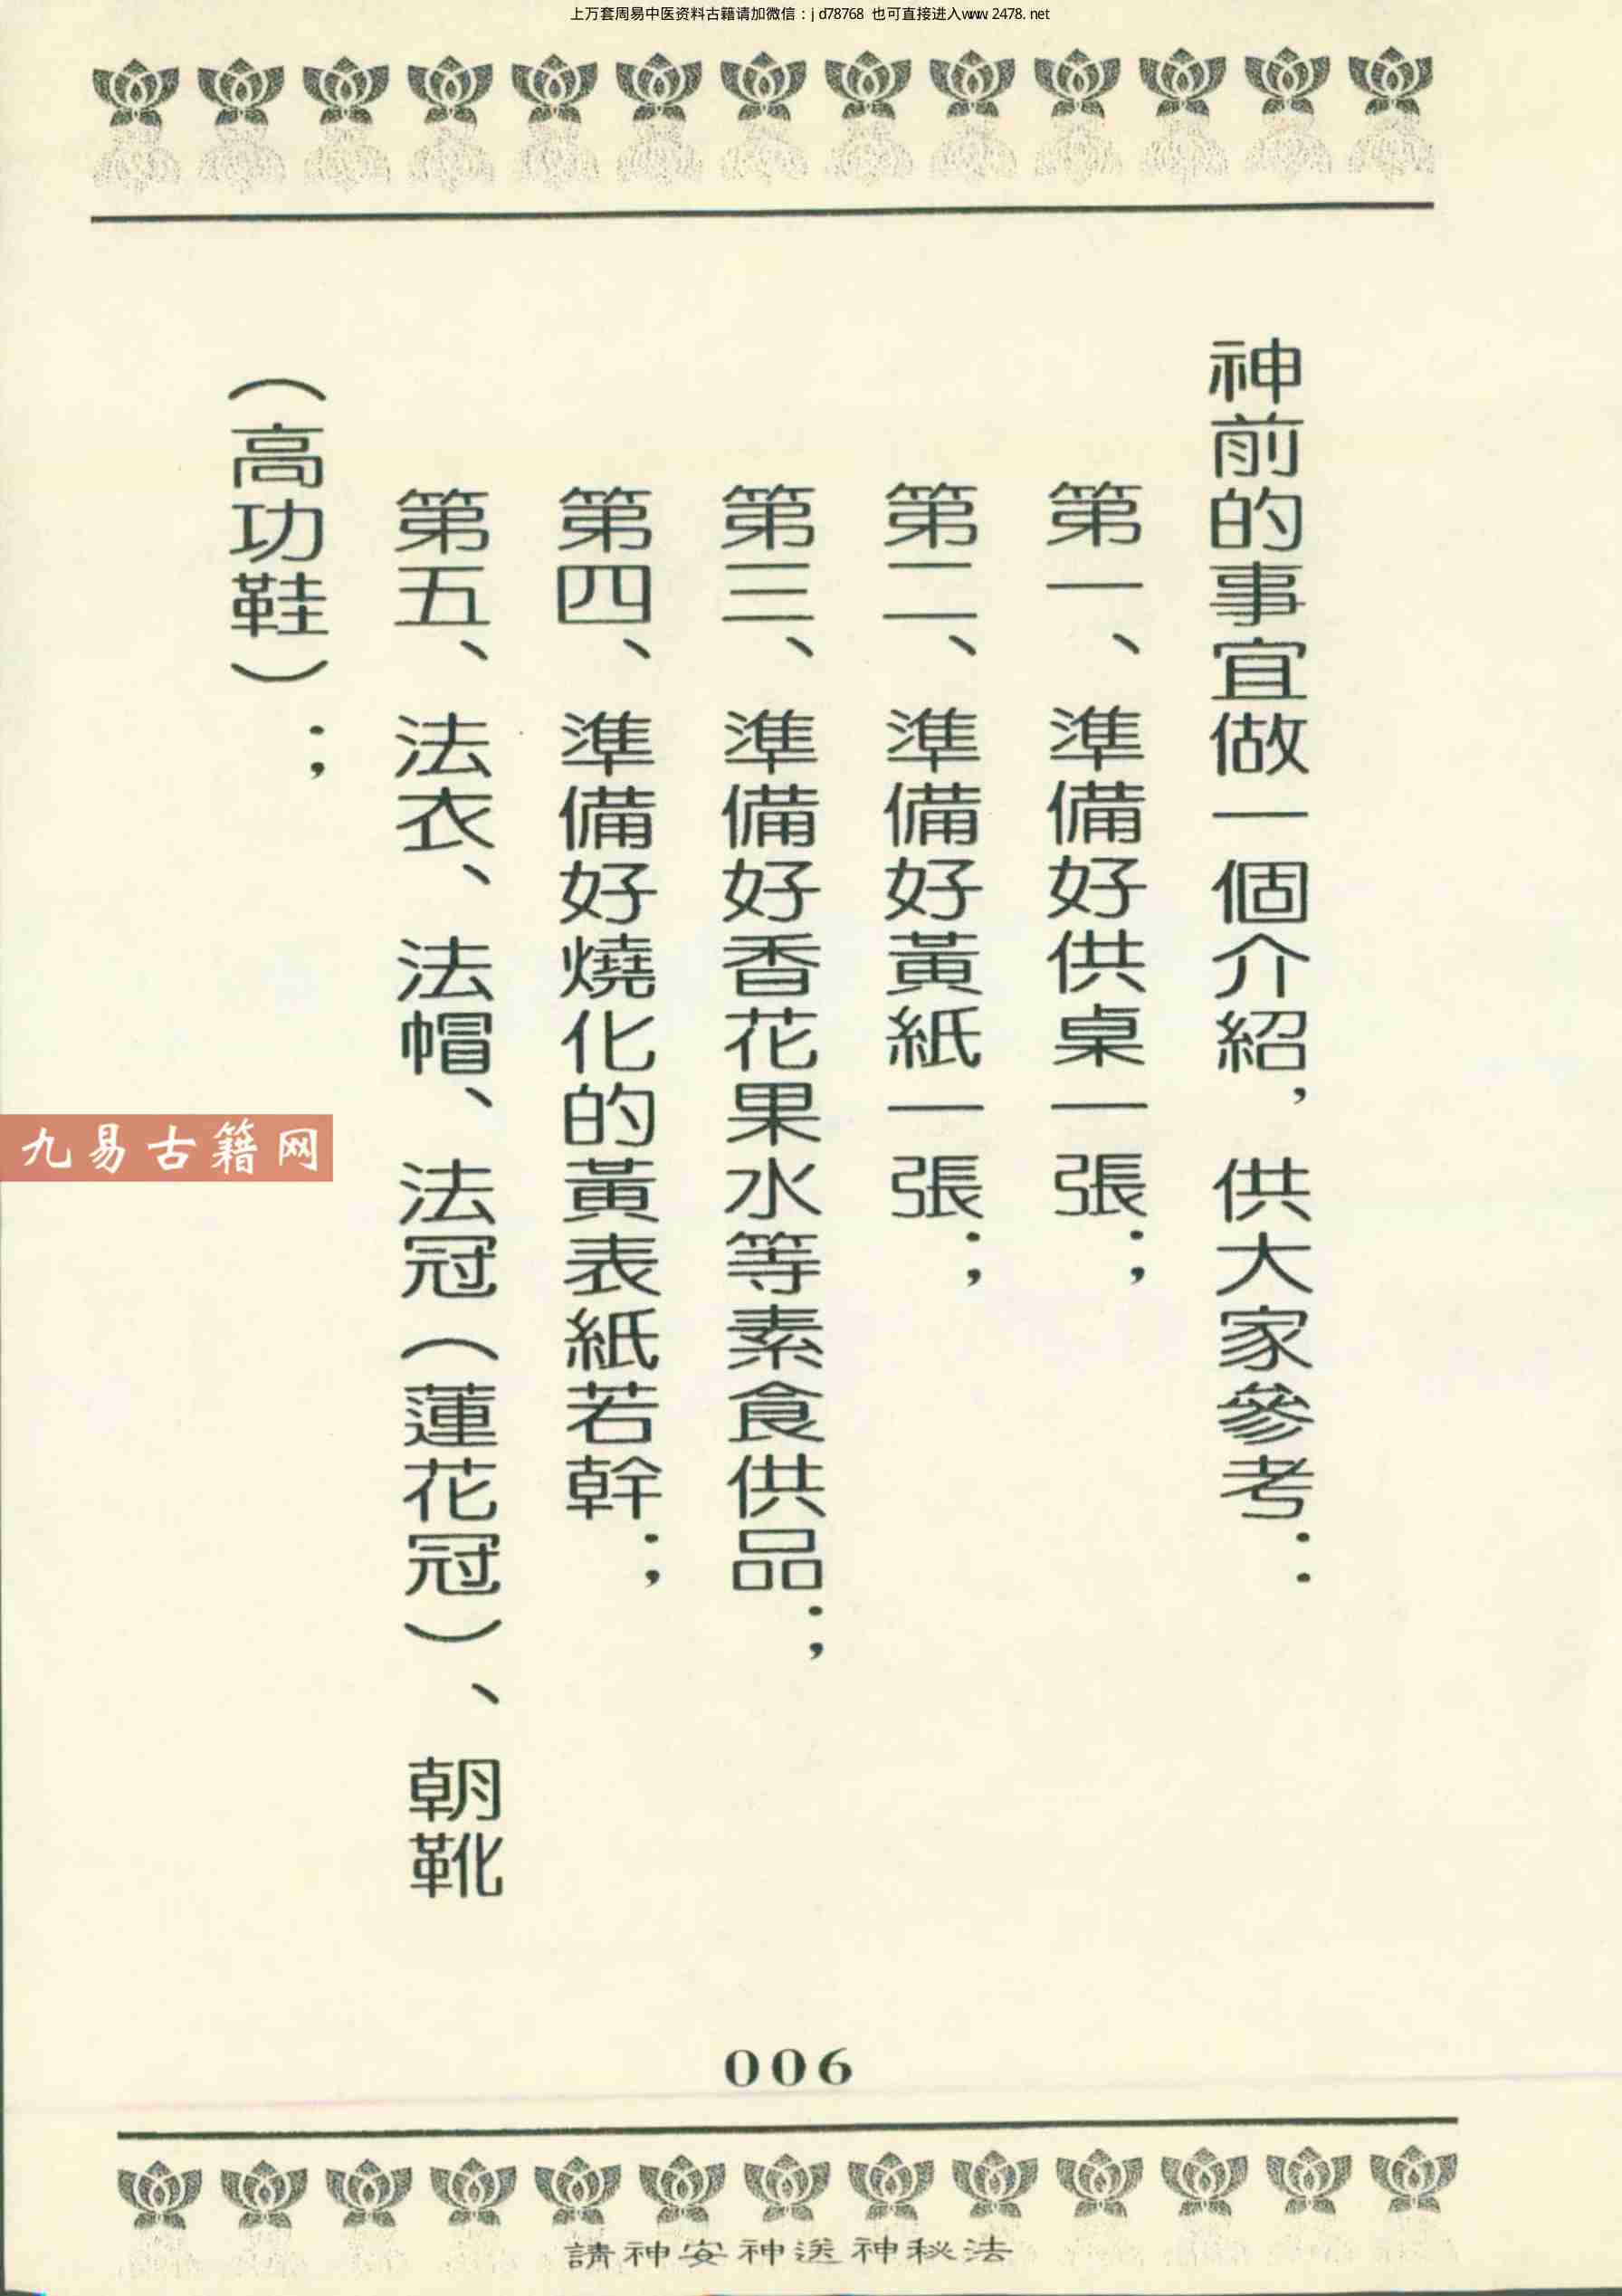 上万套周易中医资料古籍请加微信：jd78768 也可直接进入www.2478.net
神前的事宜做一個介紹，供大家參考：
第一、準備好供桌一張；
第二、準備好黃紙一張；
第三、準備好香花果水等素食供品；
第四、準備好燒化的黃表紙若幹；
第五、法衣、法帽、法冠（蓮花冠）、朝靴
（高功鞋）；
九易古籍网
006
請神安神送神秘法